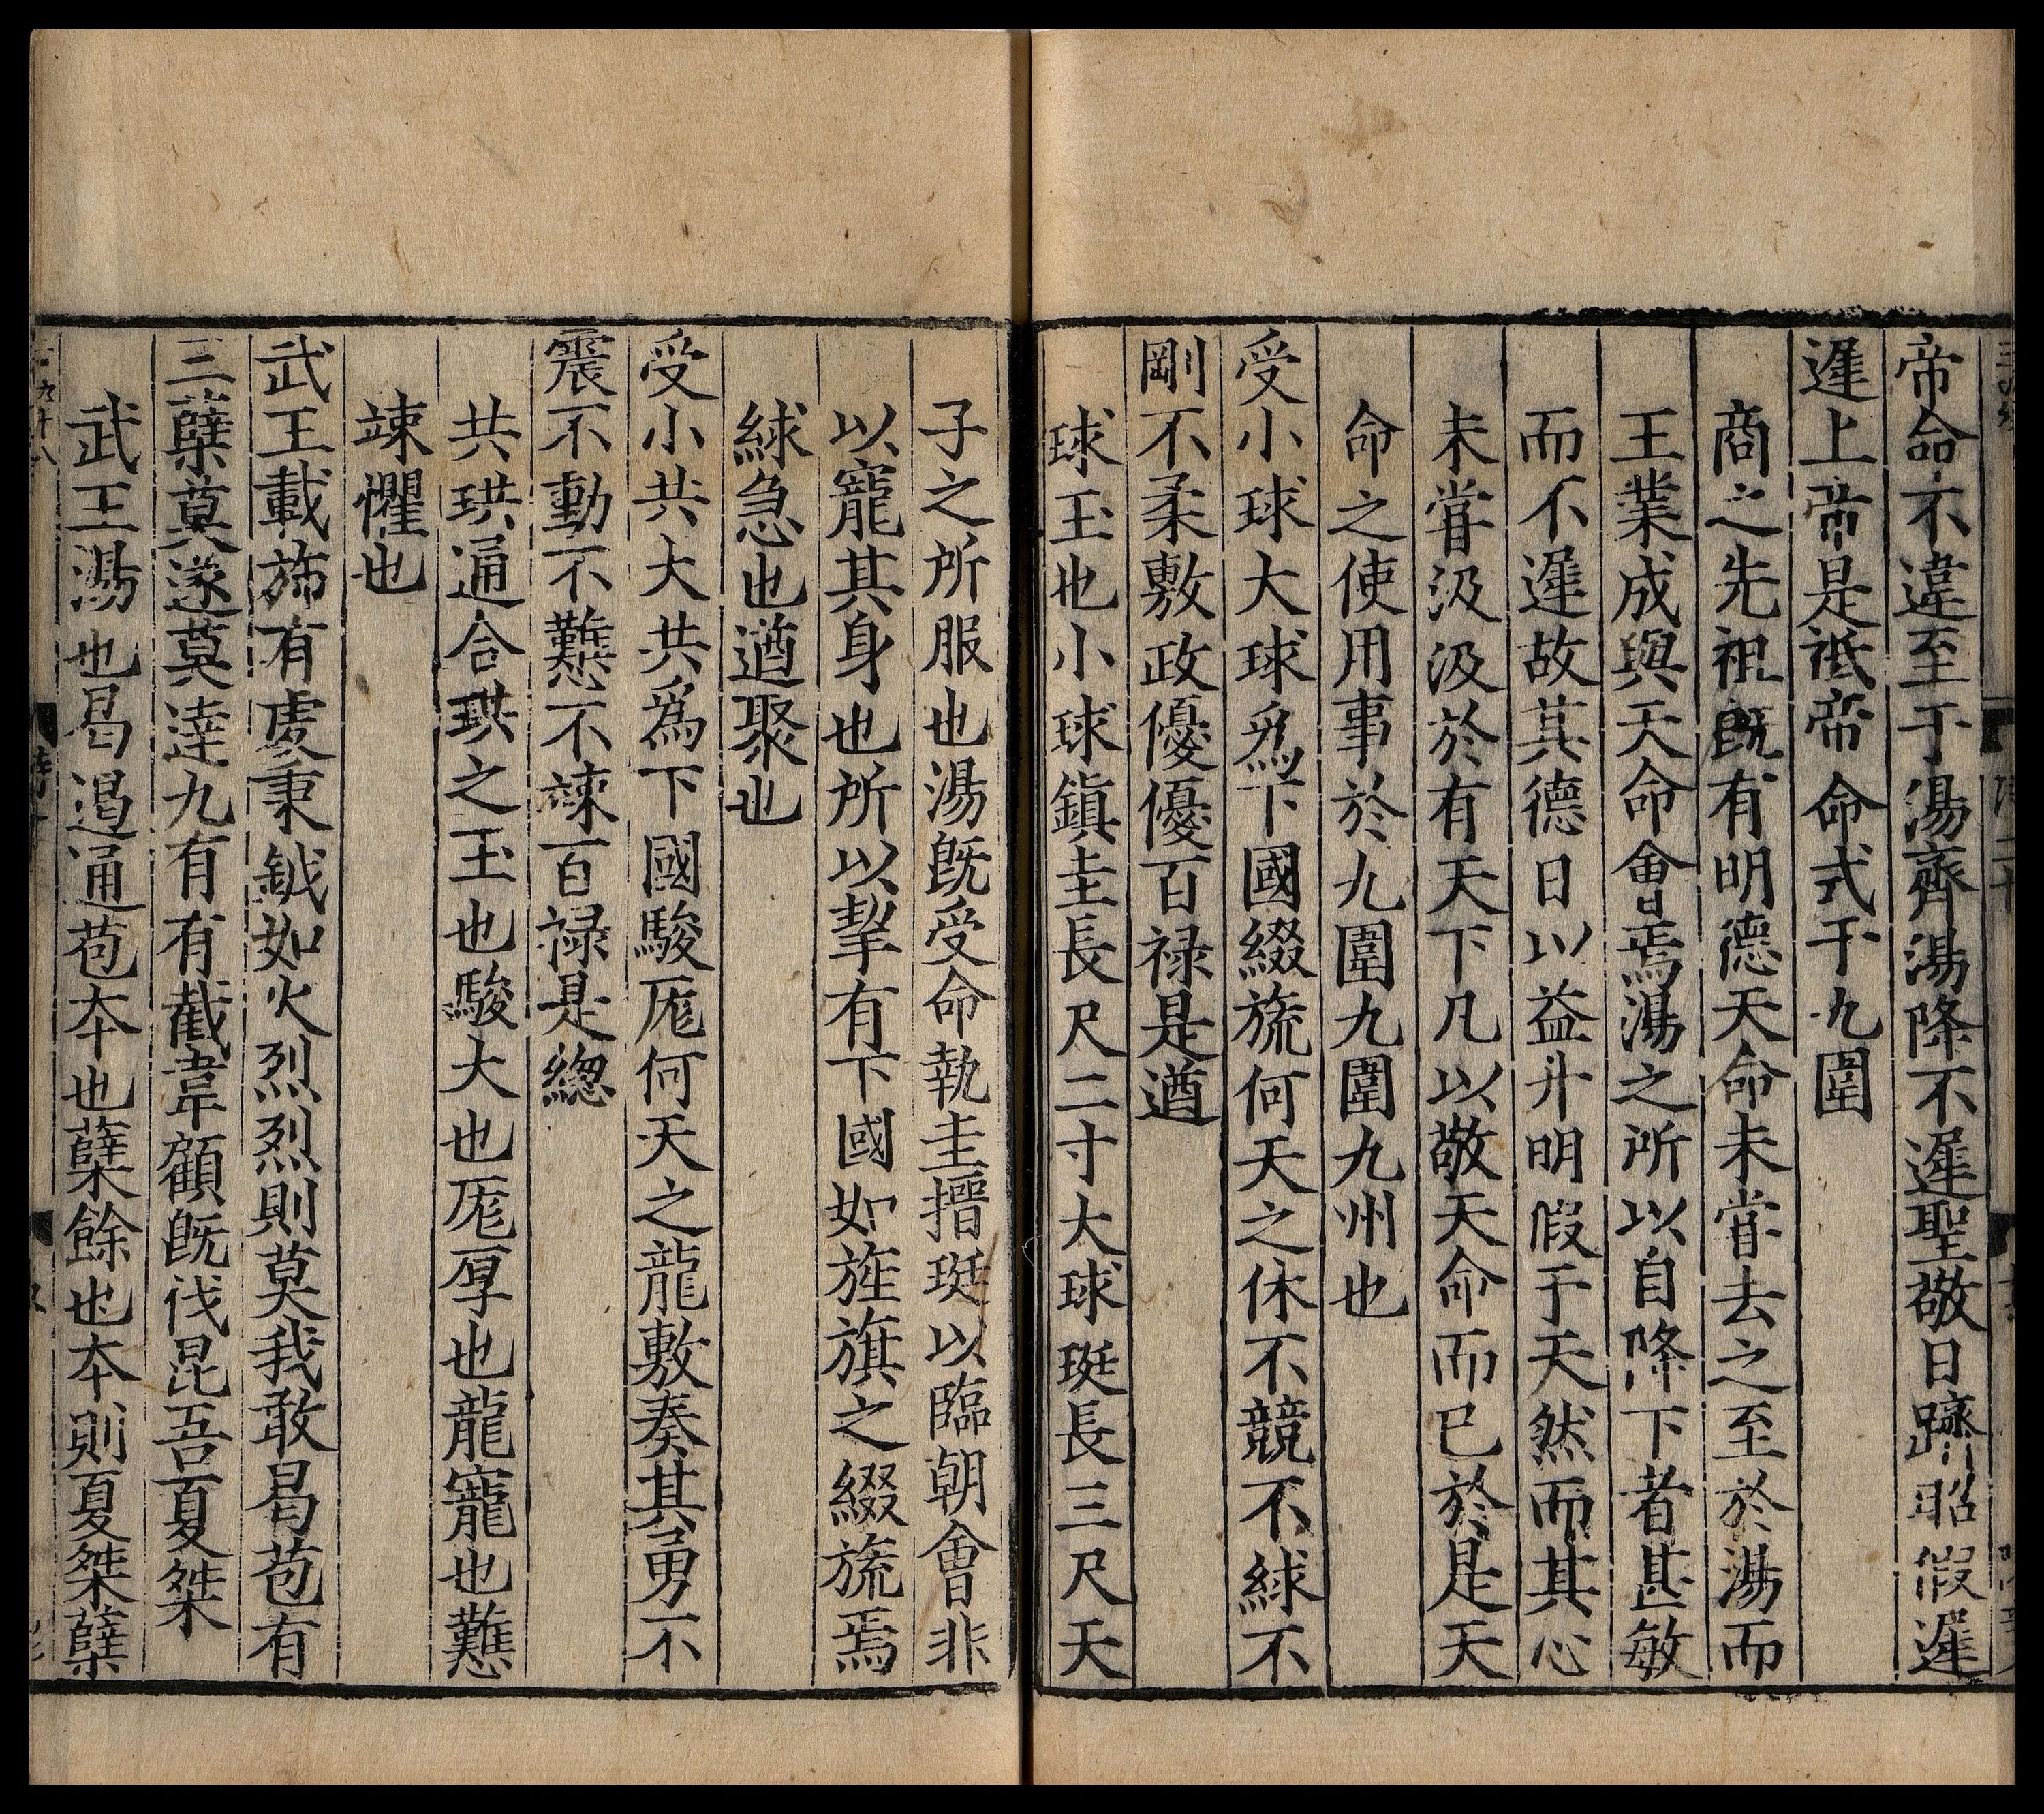 帝命不違至于湯齊湯降不遲聖敬日躋昭假遲
遲上帝是祗帝命式于九圍
商之先祖既有明德天命未嘗去之至於湯而
王業成與天命會焉湯之所以自降下者甚敏
而不遲故其德日以益升明假于天然而其心
未嘗汲汲於有天下凡以敬天命而已於是天
命之使用事於九圍九圍九州也
受小球大球為下國綴旒何天之休不競不絿不
剛不柔敷政優優百祿是遒
球玉也小球鎮圭長尺二寸大球珽長三尺天
子之所服也湯既受命執圭搢珽以臨朝會非
以寵其身也所以挈有下國如旌旗之綴旒焉
絿急也遒聚也
受小共大共為下國駿厖何天之龍敷奏其勇不
震不動不戁不竦百祿是總
共珙通合珙之玉也駿大也厖厚也龍寵也戁
竦懼也
武王載斾有虔秉鉞如火烈烈則莫我敢曷苞有
三蘖莫遂莫達九有有截韋顧既伐昆吾夏桀
武王湯也曷遏通苞本也蘖餘也本則夏桀蘖